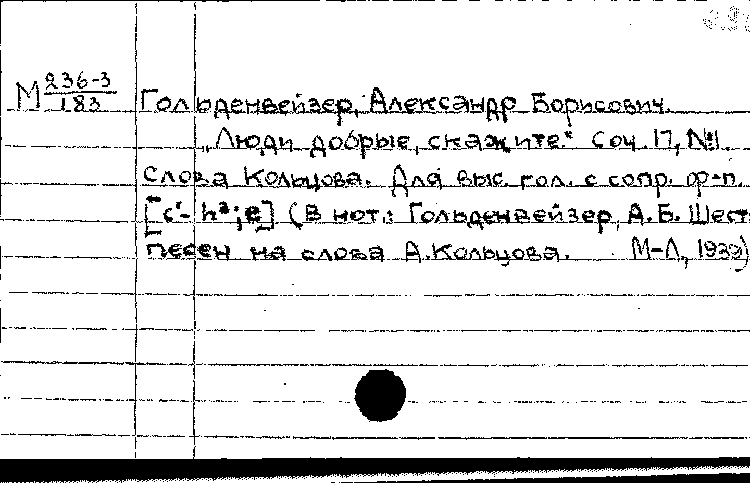 М 236-3/183 Гольденвейзер, Александр Борисович.
„Люди добрые, скажите." Соч. 17, №1.
Слова Кольцова. Для выс. гол. с сопр. ф-п.
[c'- h²; e] (В нот.: Гольденвейзер, А.Б. Шесть
песен на слова А.Кольцова. М-Л, 1939)